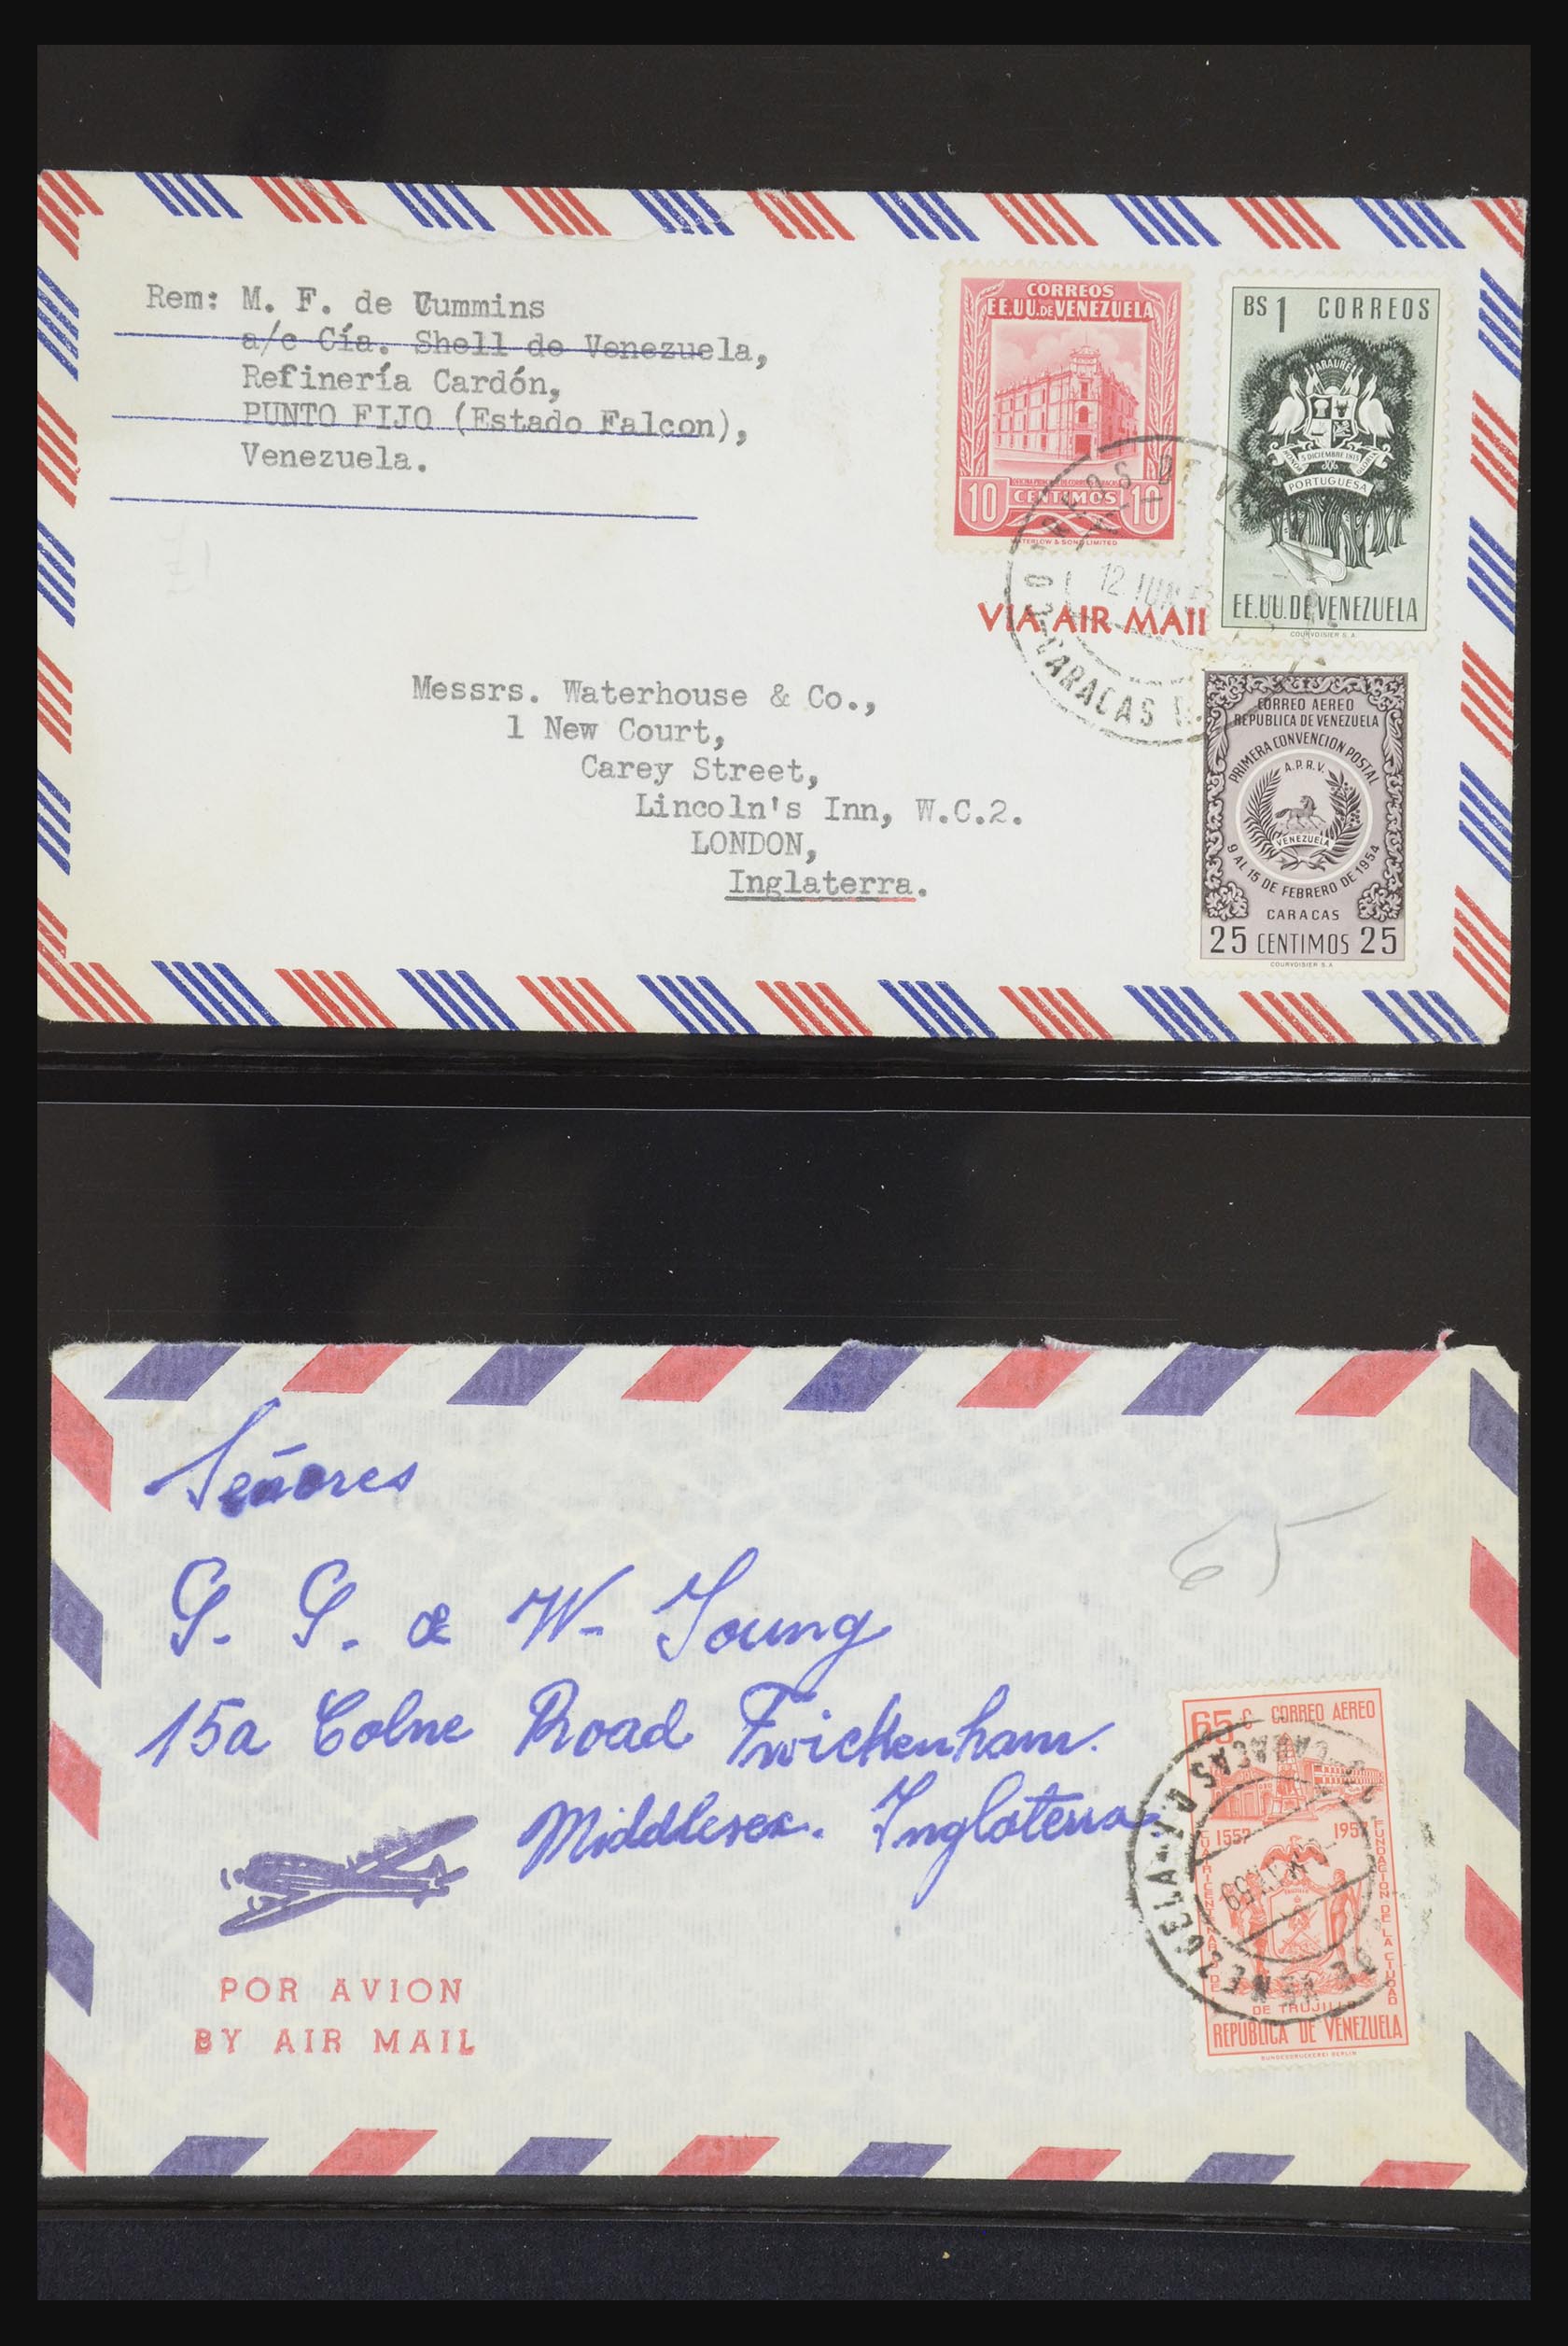 Rem: M. F. de Cummins
a/c Cía. Shell de Venezuela,
Refinería Cardón,
PUNTO FIJO (Estado Falcon),
Venezuela.
CORREOS
EE.UU. DE VENEZUELA
10 CENTIMOS 10
WATERLOW & SONS LIMITED
BS 1 CORREOS
ARAURE
HONOR 5 DICIEMBRE 1813 GLORIA
PORTUGUESA
EE.UU.DE VENEZUELA
COURVOISIER S.A.
12 JUN
CARACAS
VIA AIR MAIL
CORREO AEREO
REPUBLICA DE VENEZUELA
PRIMERA CONVENCION POSTAL
A.P.R.V.
VENEZUELA
9 AL 15 DE FEBRERO DE 1954
CARACAS
25 CENTIMOS 25
COURVOISIER S.A
Messrs. Waterhouse & Co.,
1 New Court,
Carey Street,
Lincoln's Inn, W.C.2.
LONDON,
Inglaterra.
Señores
G. G. & W. Young
15a Colne Road Twickenham.
Middlesex. Inglaterra
65
POR AVION
BY AIR MAIL
65 c CORREO AEREO
1557 1957
FUNDACION DE LA CIUDAD
DE TRUJILLO
REPUBLICA DE VENEZUELA
BUNDESDRUCKEREI BERLIN
CARACAS